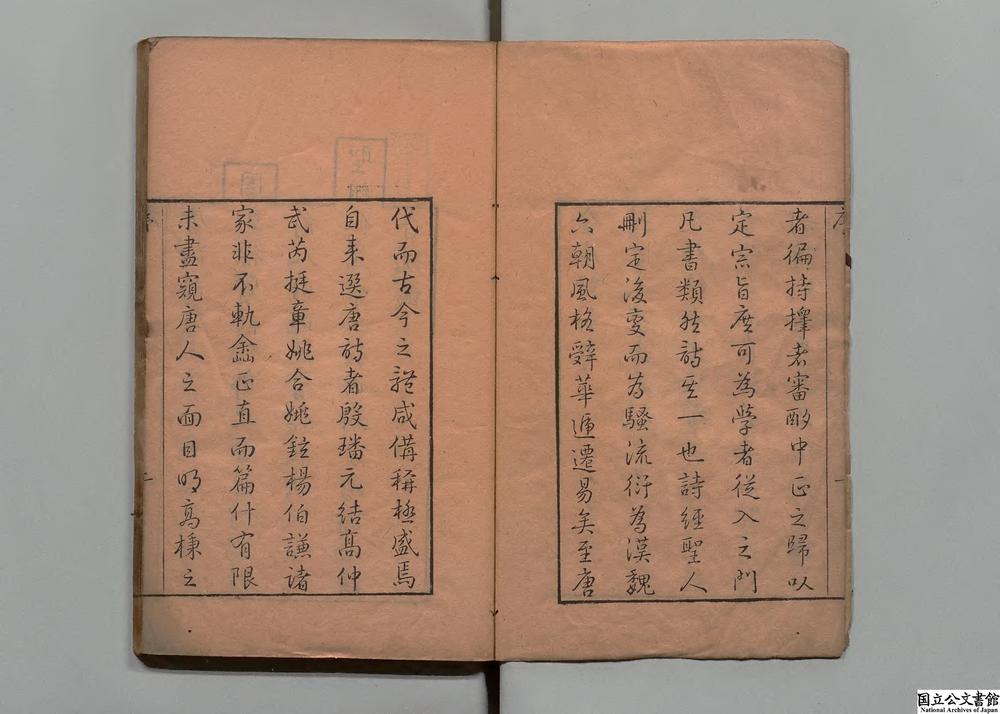 序
者徧持擇者審酌中正之歸以
定宗旨庶可為學者從入之門
凡書類然詩其一也詩經聖人
刪定後變而為騷流衍為漢魏
六朝風格辭華遞遷易矣至唐
一
代而古今之體咸備稱極盛焉
自來選唐詩者殷璠元結高仲
武芮挺章姚合姚鉉楊伯謙諸
家非不軌於正直而篇什有限
未盡窺唐人之面目明高棅之
序
二
国立公文書館
National Archives of Japan